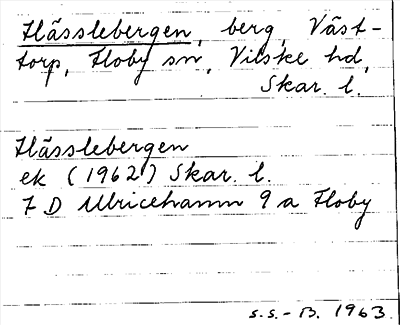 Hässlebergen, berg, Väst-
torp, Floby sn, Vilske hd,
Skar. l.
Hässlebergen
ek (1962) Skar. l.
7 D Ulricehamn 9 a Floby
S.S.-B. 1963.